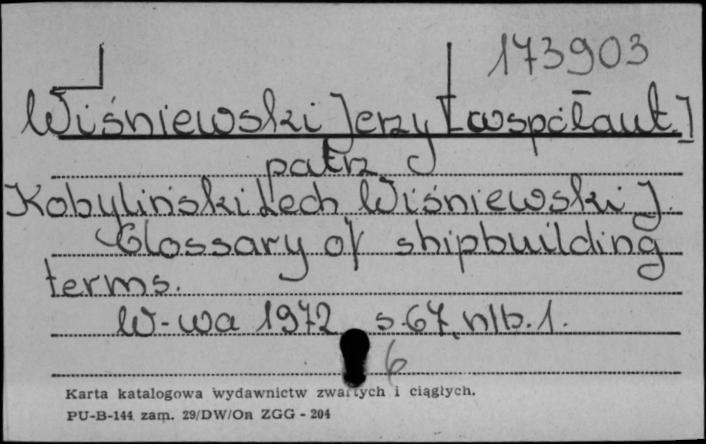 173903
Wiśniewski Jerzy [współaut.]
patrz
Kobyliński Lech Wiśniewski J.
Glossary of shipbuilding
terms.
W-wa 1972 s.67, nlb.1.
6
Karta katalogowa wydawnictw zwartych i ciągłych.
PU-B-144 zam. 29/DW/On ZGG - 204